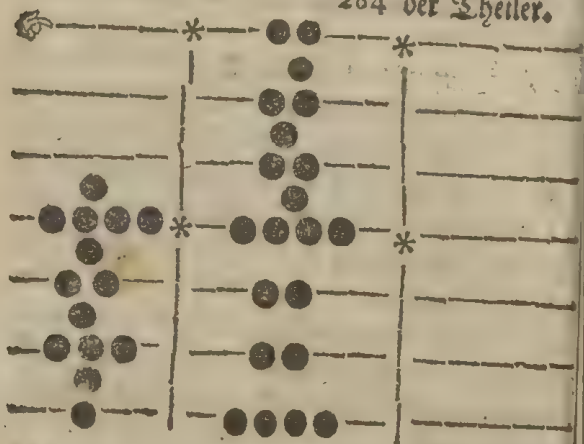 284 der Theiler.